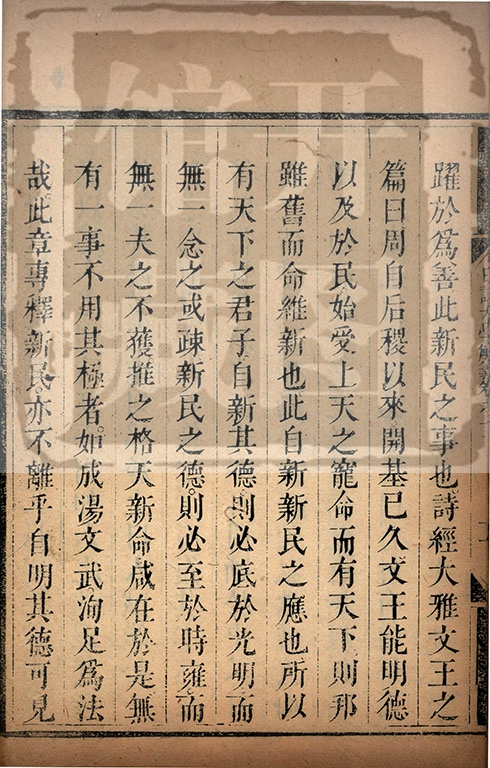 躍於爲善此新民之事也詩經大雅文王之
篇曰周自后稷以來開基已久文王能明德
以及於民始受上天之寵命而有天下則邦
雖舊而命維新也此自新新民之應也所以
有天下之君子自新其德則必底於光明而
無一念之或疎新民之德則必至於時雍而
無一夫之不獲推之格天新命咸在於是無
有一事不用其極者如成湯文武洵足爲法
哉此章專釋新民亦不離乎自明其德可見